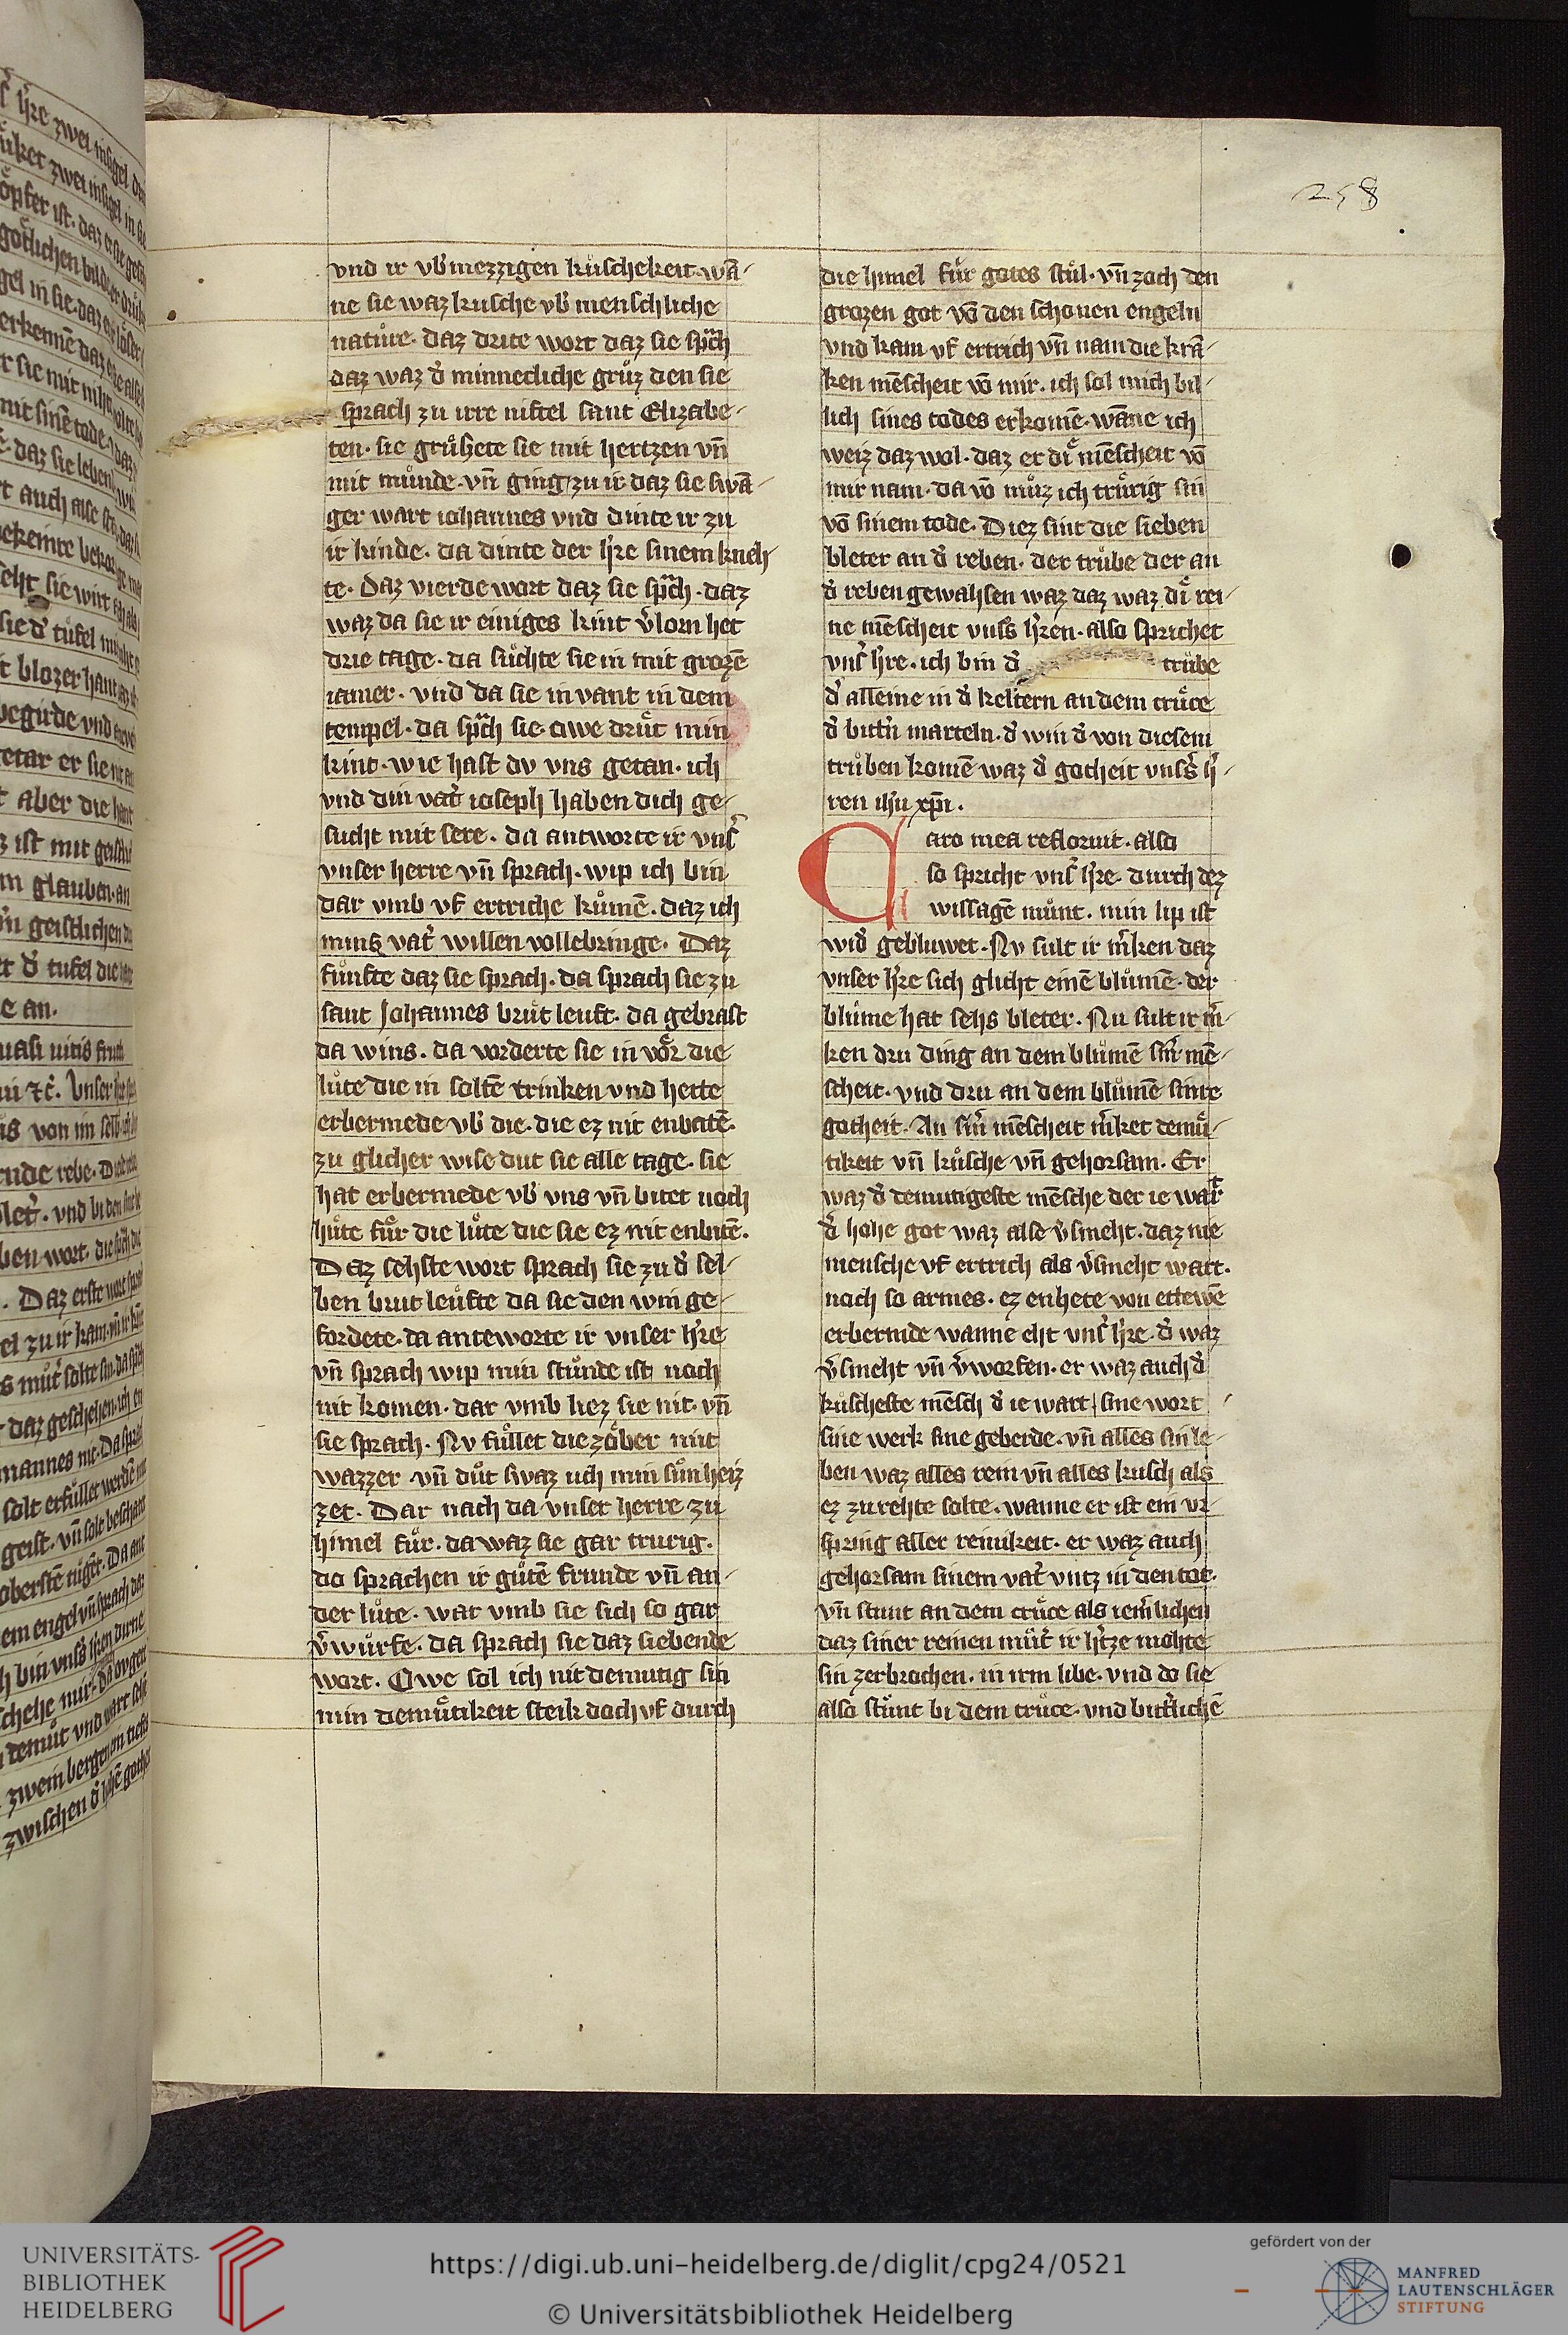 258
vnd ir vb͛mezzigen kuͤschekeit. wā-
ne sie waz kusche vb͛ menschliche
natuͤre. daz drite wort daz sie sp̄ch
daz waz d͛ minnecliche gruͤz den sie
sprach zu irre niftel sant Elizabe-
ten. sie gruͤzete sie mit hertzen vn̄
mit muͤnde. vn̄ ging zu ir daz sie swā-
ger wart iohannes vnd dinte ir zu
ir kinde. da dinte der h͛re sinem kneh
te. Daz vierde wort daz sie sp̄ch. daz
waz da sie ir einiges kint v͛lorn het
drie tage. da suͤchte sie in mit grozē
iamer. vnd da sie in vant in dem
tempel. da sp̄ch sie. owe druͤt min
kint. wie hast dv vns getan. ich
vnd din vat͛ ioseph haben dich ge-
sucht mit sere. da antworte ir vns͛
vnser herre vn̄ sprach. wip ich bin
dar vmb vf ertriche kuͤmē. daz ich
mins vat͛ willen vollebringe. Daz
fuͤnfte daz sie sprach. da sprach sie zu
sant Johannes bruͤtleuft. da gebrast
da wins. da vorderte sie in voͤr die
luͤte die in soltē trinken vnd hette
erbermede vb͛ die. die ez nit enbatē.
zu glicher wise dut sie alle tage. sie
hat erbermede vb͛ vns vn̄ bitet noch
huͤte fuͤr die luͤte die sie ez nit enbitē.
Daz sehste wort sprach sie zu d͛ sel-
ben brutleuͤfte da sie den win ge-
fordete. da anteworte ir vnser h͛re
vn̄ sprach wip min stuͤnde ist noch
nit komen. dar vmb liez sie nit. vn̄
sie sprach. Nv fuͤllet die zoͤber mit
wazzer vn̄ duͤt swaz uch min suͤn heiz
zet. Dar nach da vnser herre zu
himel fuͤr. da waz sie gar trurig.
do sprachen ir guͤtē frunde vn̄ an-
der luͤte. war vmb sie sich so gar
v͛wuͤrfe. da sprach sie daz siebende
wort. Owe sol ich nit demutig sin
min demuͤtikeit steik doch vf durch
die himel fuͤr gotes stuͤl. vn̄ zoch den
grozen got vō den schonen engeln
vnd kam vf ertrich vn̄ nam die krā-
ken mēscheit vō mir. ich sol mich bil-
lich sines todes erkomē. wāne ich
weiz daz wol. daz er di͛ mēscheit vō
mir nam. da vō muͤz ich truͤrig sin
vō sinem tode. Diez sint die sieben
bleter an d͛ reben. der truͤbe der an
d͛ reben gewahsen waz daz waz di͛ rei-
ne mēscheit vnss͛ h͛ren. also sprichet
vns͛ h͛re. ich bin d͛ truͤbe
d͛ alleine in d͛ keltern an dem cruͤce
d͛ bitt͛n marteln. d͛ win d͛ von diesem
truͤben komē waz d͛ gotheit vnss͛ h͛-
ren ihu xp̄i.
Caro mea refloruit. also
so spricht vns͛ h͛re. durch dez
wissagē muͤnt. min lip ist
wid͛ gebluwet. Nv sult ir m͛ken daz
vnser h͛re sich glicht einē bluͤmē. der
bluͤme hat sehs bleter. Nu sult ir m͛-
ken dru ding an dem bluͤmē sin͛ mē-
scheit. vnd dru an dem bluͤmē sinre
gotheit. An sin͛ mēscheit m͛ket demuͤ-
tikeit vn̄ kuͤsche vn̄ gehorsam. Er
waz d͛ demutigeste mēsche der ie wart
d͛ hohe got waz alse v͛smeht. daz nie
mensche vf ertrich als v͛smeht wart.
noch so armes. ez enhete von ettewē
erbermde wanne eht vns͛ h͛re. d͛ waz
v͛smeht vn̄ v͛worfen. er waz auch d͛
kuͤscheste mēsch d͛ ie wart sine wort
sine werk sine geberde. vn̄ alles sin le-
ben waz alles rein vn̄ alles kusch als
ez zu rehte solte. wanne er ist ein vr-
spring aller reinikeit. er waz auch
gehorsam sinem vat͛ vntz in den tot.
vn̄ stunt an dem cruͤce als iem͛lichen
daz siner reinen muͤt͛ ir h͛tze mohte
sin zerbrochen. in irm libe. vnd do sie
also stuͤnt bi dem cruͤce. vnd bitt͛lichē
UNIVERSITÄTS-
BIBLIOTHEK
HEIDELBERG
https://digi.ub.uni-heidelberg.de/diglit/cpg24/0521
© Universitätsbibliothek Heidelberg
gefördert von der
MANFRED
LAUTENSCHLÄGER
STIFTUNG